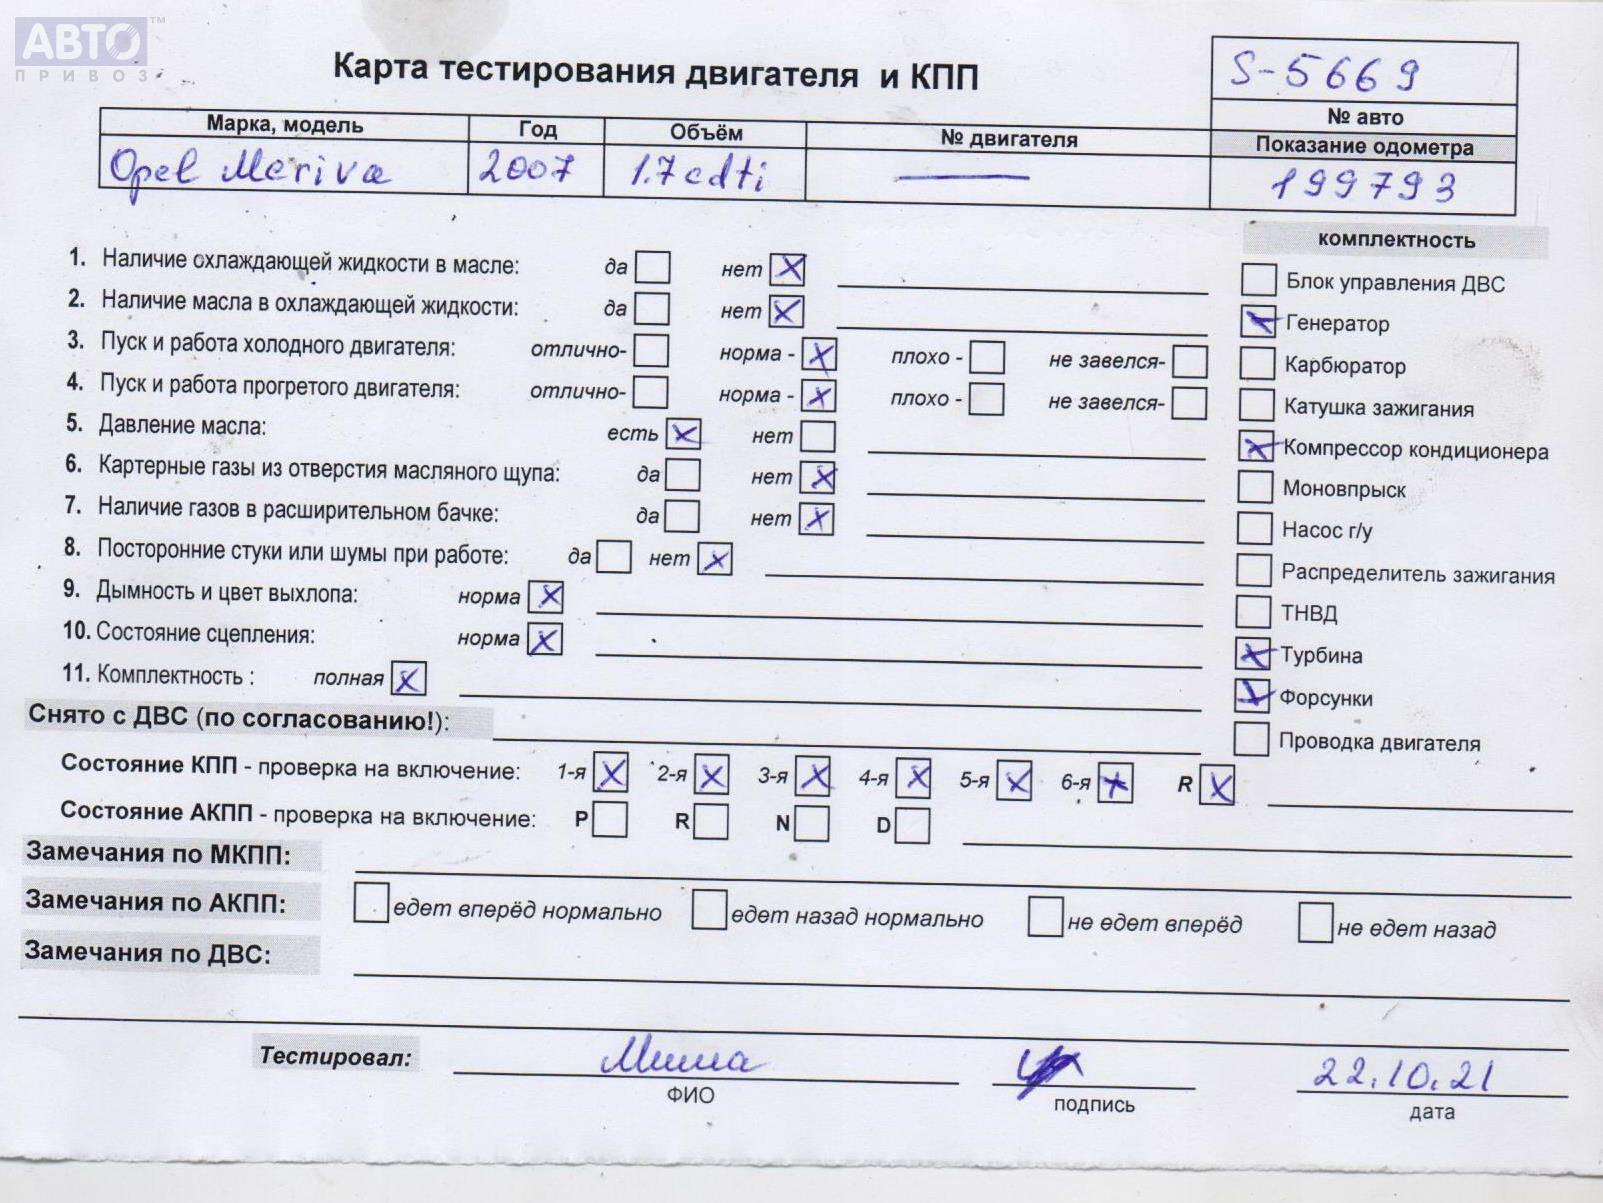 АВТО™
ПРИВОЗ
Карта тестирования двигателя и КПП
S-5669
№ авто
Марка, модель Год Объём № двигателя Показание одометра
Opel Meriva 2007 1.7cdti — 199793
комплектность
1. Наличие охлаждающей жидкости в масле: да нет X
2. Наличие масла в охлаждающей жидкости: да нет X
3. Пуск и работа холодного двигателя: отлично- норма - X плохо - не завелся-
4. Пуск и работа прогретого двигателя: отлично- норма - X плохо - не завелся-
5. Давление масла: есть X нет
6. Картерные газы из отверстия масляного щупа: да нет X
7. Наличие газов в расширительном бачке: да нет X
8. Посторонние стуки или шумы при работе: да нет X
9. Дымность и цвет выхлопа: норма X
10. Состояние сцепления: норма X
11. Комплектность : полная X
Блок управления ДВС
X Генератор
Карбюратор
Катушка зажигания
X Компрессор кондиционера
Моновпрыск
Насос г/у
Распределитель зажигания
ТНВД
X Турбина
X Форсунки
Проводка двигателя
Снято с ДВС (по согласованию!):
Состояние КПП - проверка на включение: 1-я X 2-я X 3-я X 4-я X 5-я X 6-я X R X
Состояние АКПП - проверка на включение: P R N D
Замечания по МКПП:
Замечания по АКПП: едет вперёд нормально едет назад нормально не едет вперёд не едет назад
Замечания по ДВС:
Тестировал: Миша 22.10.21
ФИО подпись дата